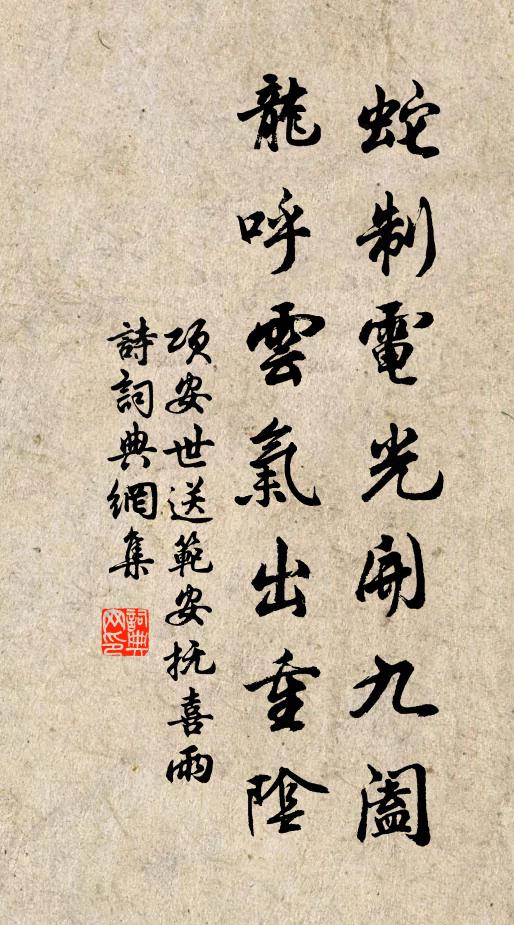 蛇制電光開九闔
龍呼雲氣出重陰
項安世送範安抚喜雨
詩詞典網集
詞典網印